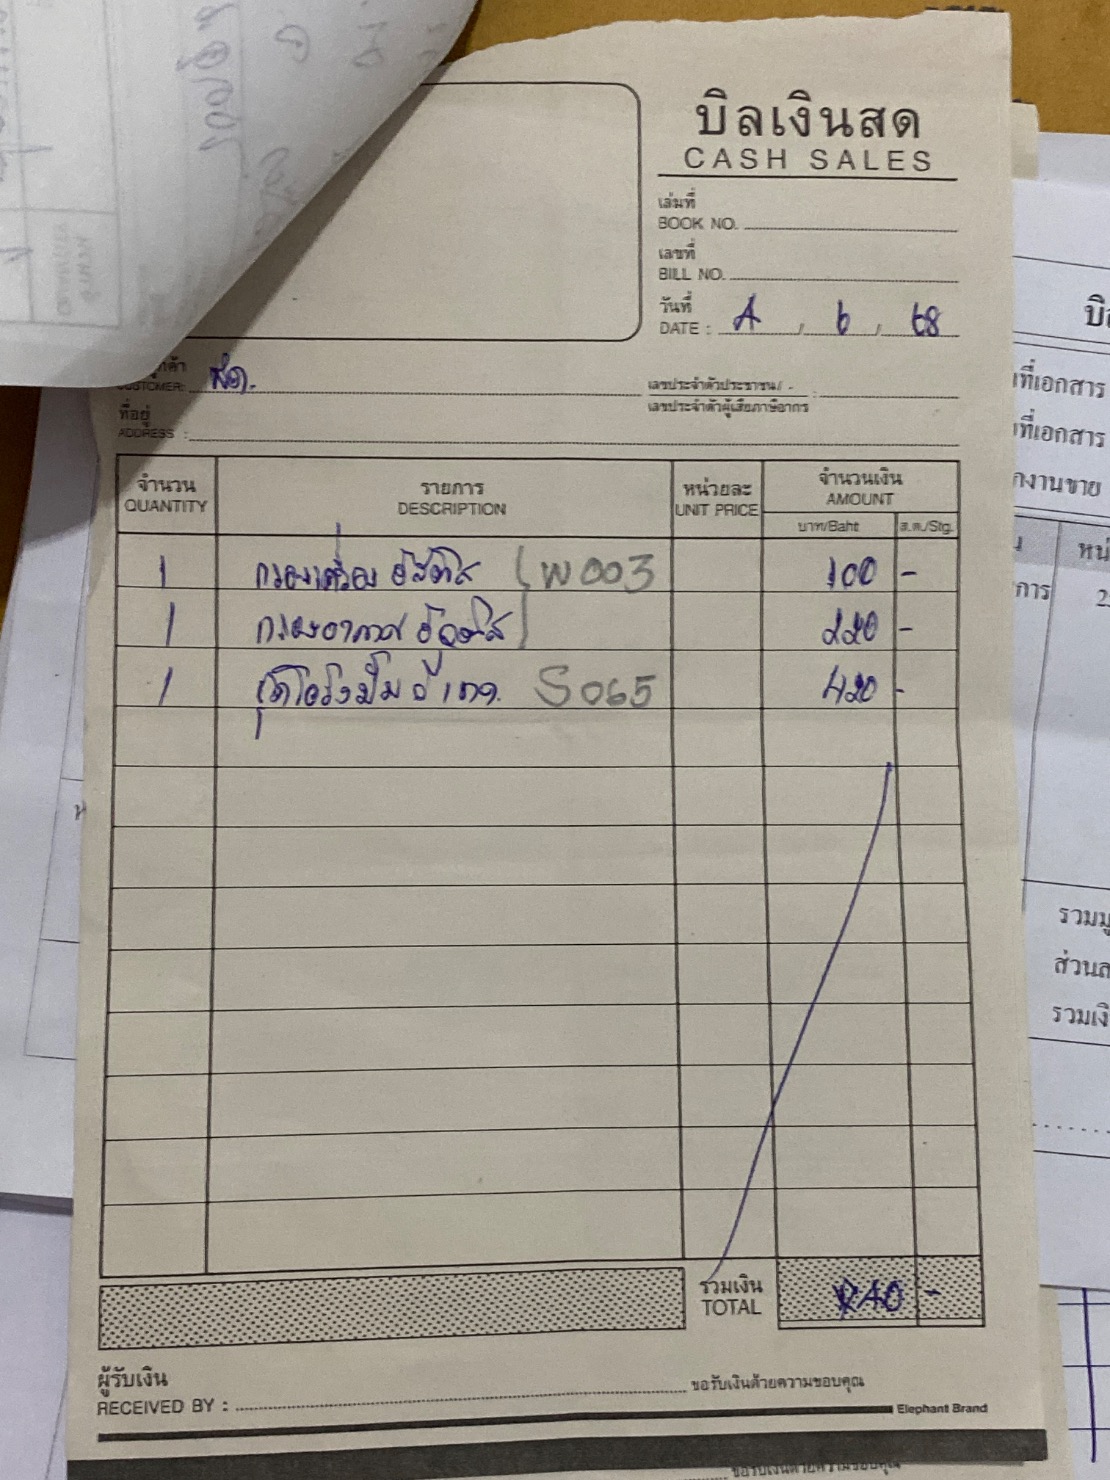 บิลเงินสด
CASH SALES
เล่มที่
BOOK NO.
เลขที่
BILL NO.
วันที่
DATE : 4 , 6 , 68
CUSTOMER: สด.
เลขประจำตัวประชาชน/ - :
เลขประจำตัวผู้เสียภาษีอากร
ที่อยู่
ADDRESS :
จำนวน รายการ หน่วยละ จำนวนเงิน
QUANTITY DESCRIPTION UNIT PRICE AMOUNT
บาท/Baht ส.ต./Stg.
1 กรองเครื่อง อีซูซุ W003 100 -
1 กรองอากาศ 220 -
1 S065 420 -
รวมเงิน
TOTAL 740 -
ผู้รับเงิน
RECEIVED BY :
ขอรับเงินด้วยความขอบคุณ
Elephant Brand
ที่เอกสาร
ที่เอกสาร
งานขาย
หน่
การ
รวมมู
ส่วนล
รวมเงิ